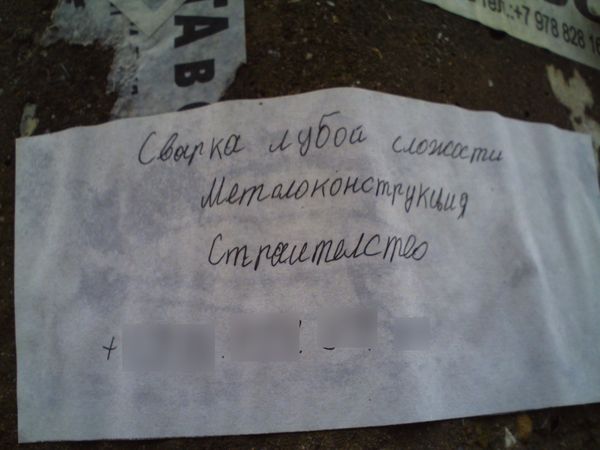 ТАВО
Тел.:+7 978 828 16
Сварка лубой сложасти
Металоконструкция
Страителство
+